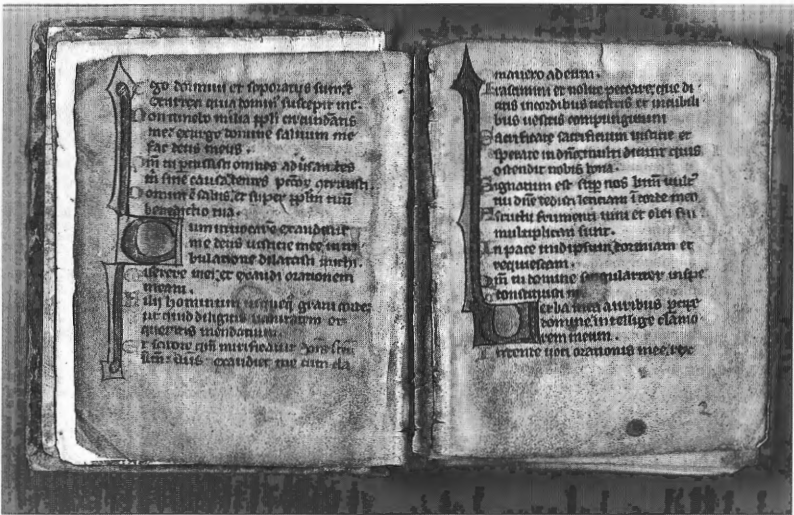 Ego dormiui et soporatus sum, et
quia domin' suscepit me.
Non timebo milia ppli circundantis
me: exurge domine saluum me
fac deus meus.
Qm tu percussisti omnes aduersantes
m sine causa, dentes
Domini ē salus, et super pplm tuū
benedictio tua.
Cum inuocarē exaudiuit
me deus iusticie mee, in tri
bulatione dilatasti michi.
Miserere mei, et exaudi orationem
meam.
Filij hominum usqueq graui corde,
ut quid diligitis uanitatem et
queritis mendatium.
Et scitote qm mirificauit dns
suum: dns exaudiet me cum cla
mauero ad eum.
Irascimini et nolite peccare, que di
citis in cordibus uestris et in cubili
bus uestris compungimini
Sacrificate sacrificium iusticie et
sperate in dno, multi dicunt quis
ostendit nobis bona.
Signatum est sup nos lumē uult'
tui dne dedisti leticiam ī corde meo
A fructu frumenti uini et olei sui
multiplicati sunt.
In pace in idipsum, dormiam et
requiescam.
Qm tu domine singulariter in spe
constituisti m
Verba mea auribus pcipe
domine, intellige clamo
rem meum.
Intende uoci orationis mee, rex